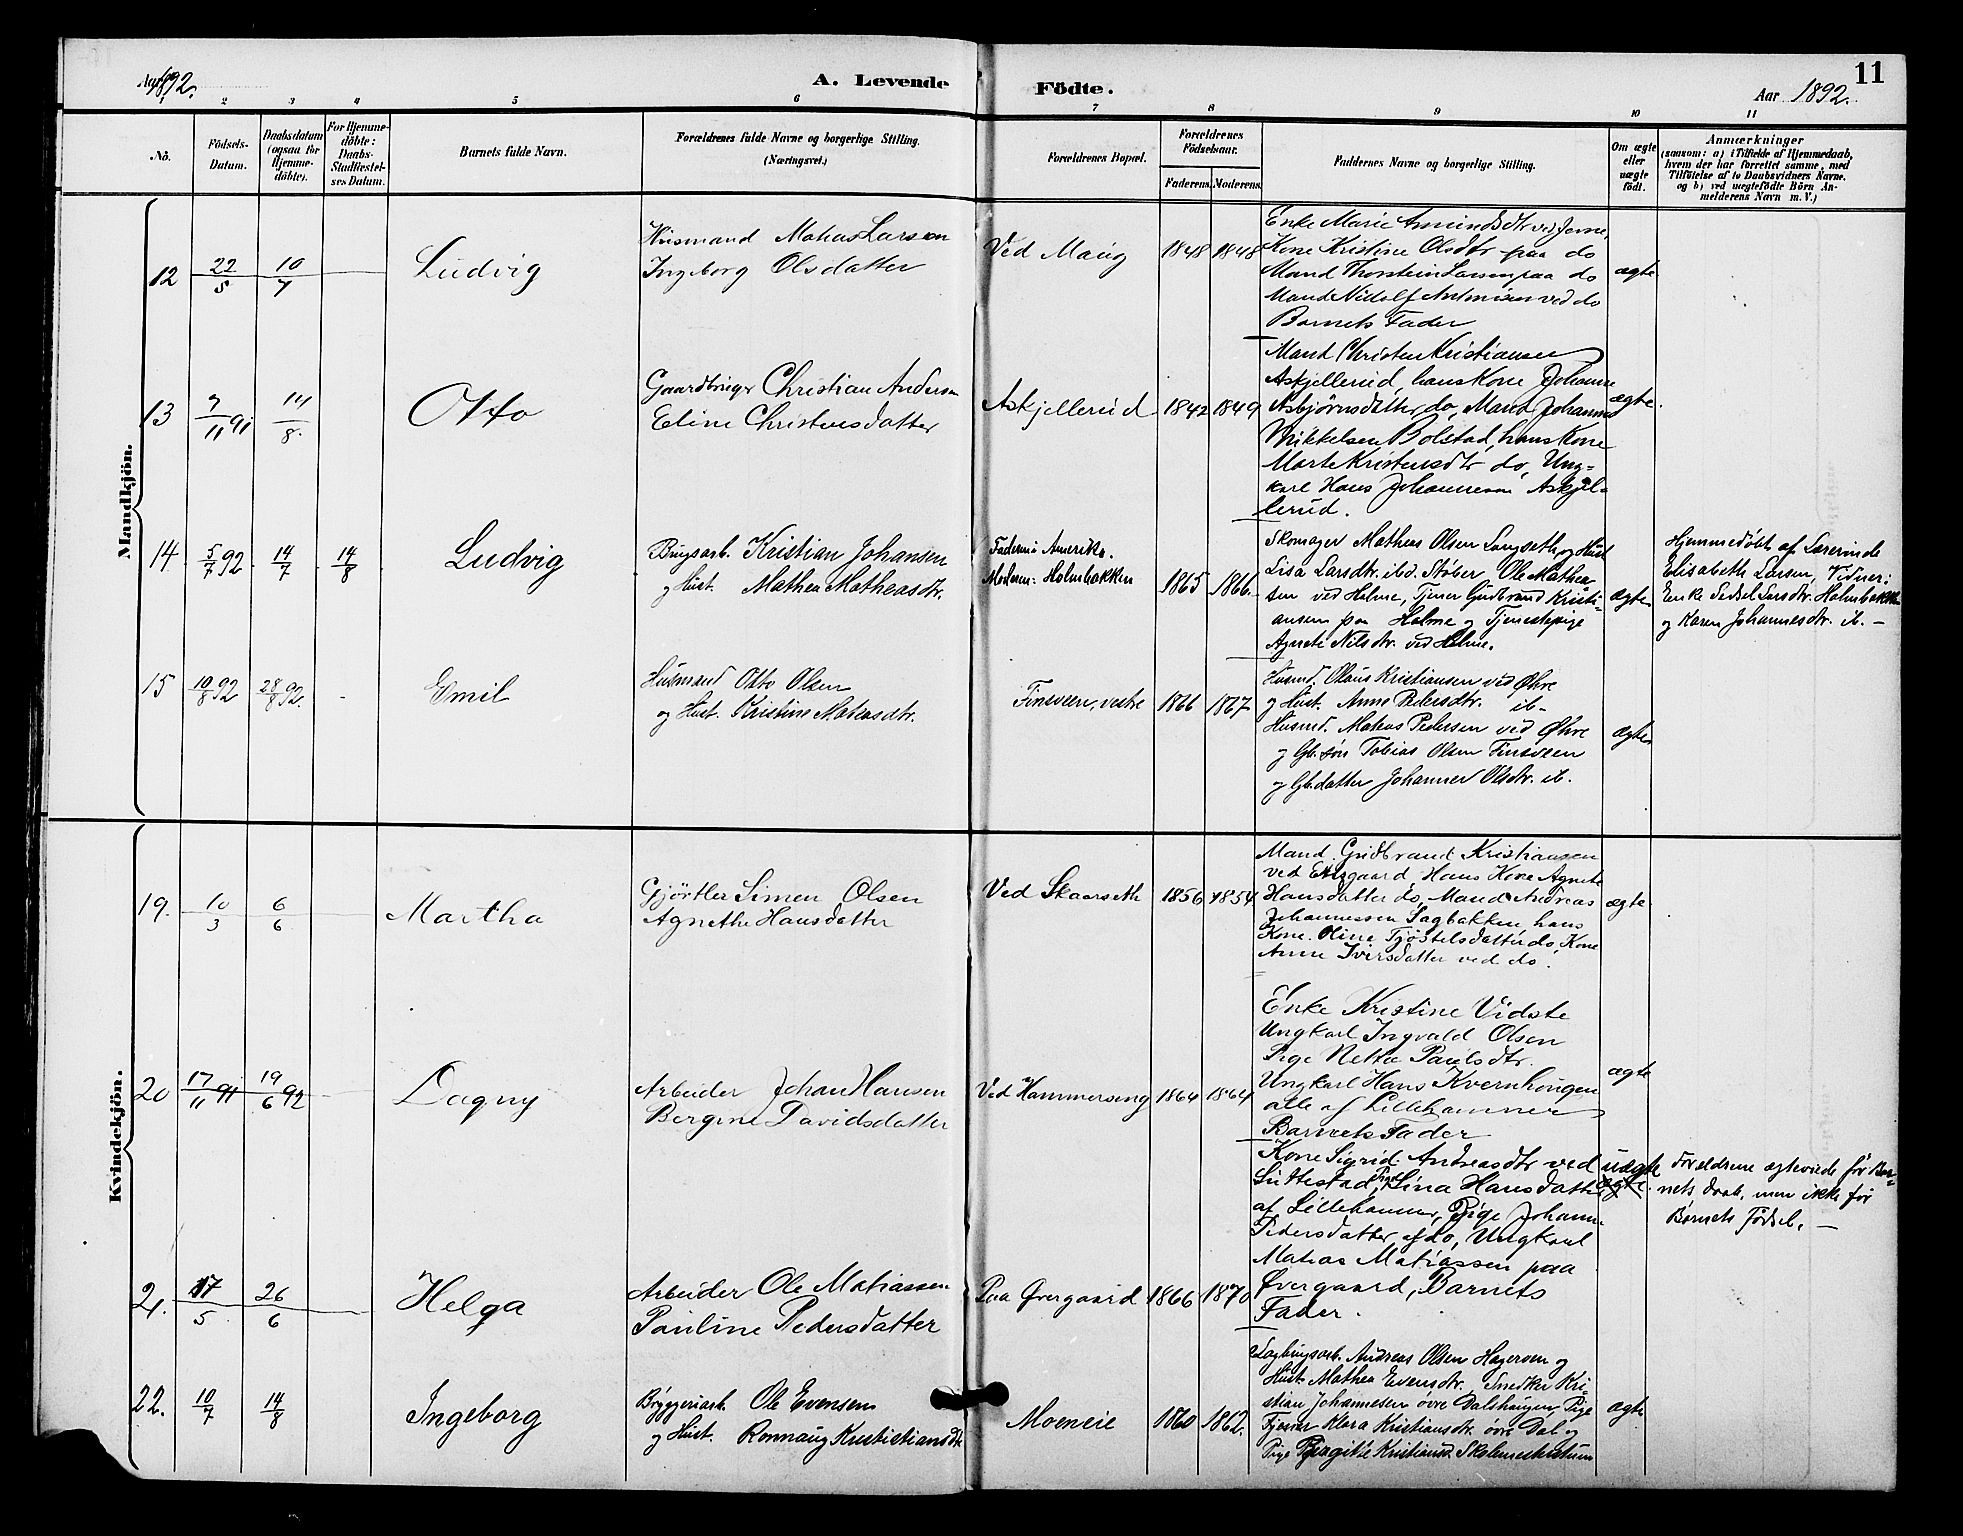 Aar 1892.
A. Levende
Födte.
Aar 1892.
11
1 2 3 4 5 6 7 8 9 10 11
Nö.
Födsels-
Datum.
Daabsdatum
(ogsaa för
Hjemme-
döbte).
For Hjemme-
döbte:
Daabs-
Stadfæstel-
ses Datum.
Barnets fulde Navn.
Forældrenes fulde Navne og borgerlige Stilling.
(Næringsvei.)
Forældrenes Bopæl.
Forældrenes
Födselsaar.
Faderens.
Moderens.
Faddernes Navne og borgerlige Stilling.
Om ægte
eller
uægte
födt.
Anmærkninger
(saasom: a) i Tilfælde af Hjemmedaab,
hvem der har forrettet samme, med
Tilföielse af to Daabsvidners Navne.
og b) ved uægtefödte Börn An-
melderens Navn m. V.)
Mandkjön.
12
22/5
10/7
Ludvig
Husmand Matias Larsen
Ingeborg Olsdatter
Ved Maug
1848
1848
Enke Marie Amundsdtr ved Jevne,
Kone Kristine Olsdtr paa do
Mand Thorstein Larsen paa do
Mand Nidolf Antonisen ved do
Barnets Fader
ægte
13
7/11 91
14/8.
Otto
Gaardbruger Christian Andersen
Eline Christensdatter
Askjellerud
1842
1849
Mand Christen Kristiansen
Askjellerud, hans Kone Johanne
Asbjørnsdatter do, Mand Johannes
Mikkelsen Bolstad, hans Kone
Marte Kristensdtr do, Ung-
karl Hans Johannesen Askjel-
lerud.
ægte.
14
5/7 92
14/7
14/8
Ludvig
Brugsarb. Kristian Johansen
og Hust. Mathea Matheasdtr.
Faderen i Amerika.
Moderen: Holmbakken
1865
1866
Skomager Matheas Olsen Langseth og Hust
Lisa Larsdtr. ibd. Støber Ole Mathea-
sen ved Holme, Tjener Gudbrand Kristi-
ansen paa Holme og Tjenestepige
Agnete Nilsdtr. ved Holme.
ægte
Hjemmedøbt af Lærerinde
Elisabeth Larsen, Vidner:
Enke Sidsel Larsdtr. Holmbakken
og Karen Johannesdtr. ib. —
15
10/8 92
28/8 92.
Emil
Husmand Otto Olsen
og Hust. Kristine Mateasdtr.
Finsveen, vestre
1866
1867
Husmd. Olaus Kristiansen ved Øhre
og Hust. Anne Pedersdtr. ib-
Husmd. Mateas Pedersen ved Øhre
og Gb.søn Tobias Olsen Finsveen
og Gb.datter Johanne Olsdtr. ib.
ægte
Kvindekjön.
19.
10/3
6/6
Martha
Gjørtler Simen Olsen
Agnethe Hansdatter
Ved Skaarseth
1856
1854
Mand Gudbrand Kristiansen
ved Elsgaard Hans Kone Agnete
Hansdatter do, Mand Andreas
Johannessen Sagbakken, hans
Kone Oline Tjøstelsdatter do, Kone
Anne Iversdatter ved do.
ægte
20
17/11 91
19/6 92
Dagny
Arbeider Johan Hansen
Bergine Davidsdatter
Ved Hammerseng
1864
1864
Enke Kristine Vidste
Ungkarl Ingvald Olsen
Pige Netta Paulsdtr.
Ungkarl Hans Kvernhougen
alle af Lillehammer
Barnets Fader
ægte
21.
17/5
26/6
Helga
Arbeider Ole Matiassen
Pauline Pedersdatter
Paa Øvergaard
1866
1870
Kone Sigrid Andreasdtr ved
Suttestad, Pige Lina Hansdatter
af Lillehammer, Pige Johanne
Pedersdatter, af do, Ungkarl
Matias Matiassen paa
Øvergaard, Barnets
Fader.
uægte
ægte.
Forældrene ægteviede før Bar-
nets Daab, men ikke før
Barnets Fødsel. —
22.
10/7
14/8
Ingeborg
Bryggeriarb. Ole Evensen
og Hust. Ronnaug Kristiansdtr
Moeneie
1860
1862.
Sagbrugsarb. Andreas Olsen Hagersen og
Hust. Mathea Evensdtr. Snedker Kri-
stian Johannesen øvre Dalshaugen Pige
Tjener Klara Kristiansdtr. øvre Dal og
Pige Kristiansd. Skolemesterstuen
ægte